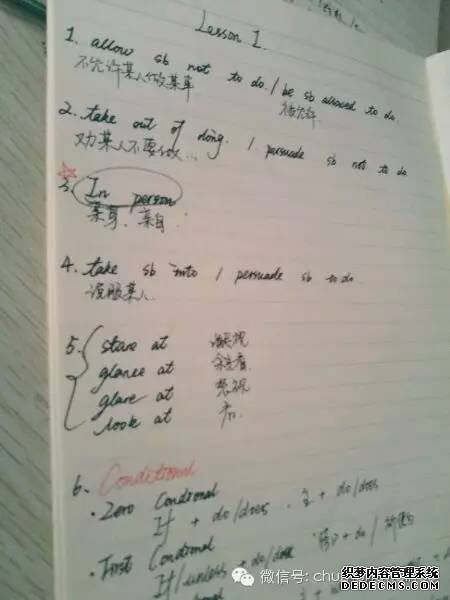 Lesson 1.
1. allow sb not to do / be sb allowed to do
不允许某人做某事 被允许
2. take out of doing. / persuade sb not to do
劝某人不要做...
3. In person
亲身、亲自
4. take sb into / persuade sb to do
说服某人.
5. stare at 凝视
glance at
glare at 怒视
look at 看.
6. Conditional
· Zero Condronal
If + do/does. 主 + do/does
· First Condronal
If/unless + do/does + do /
微信号: chu
织梦内容管理系统
DEDECMS.COM